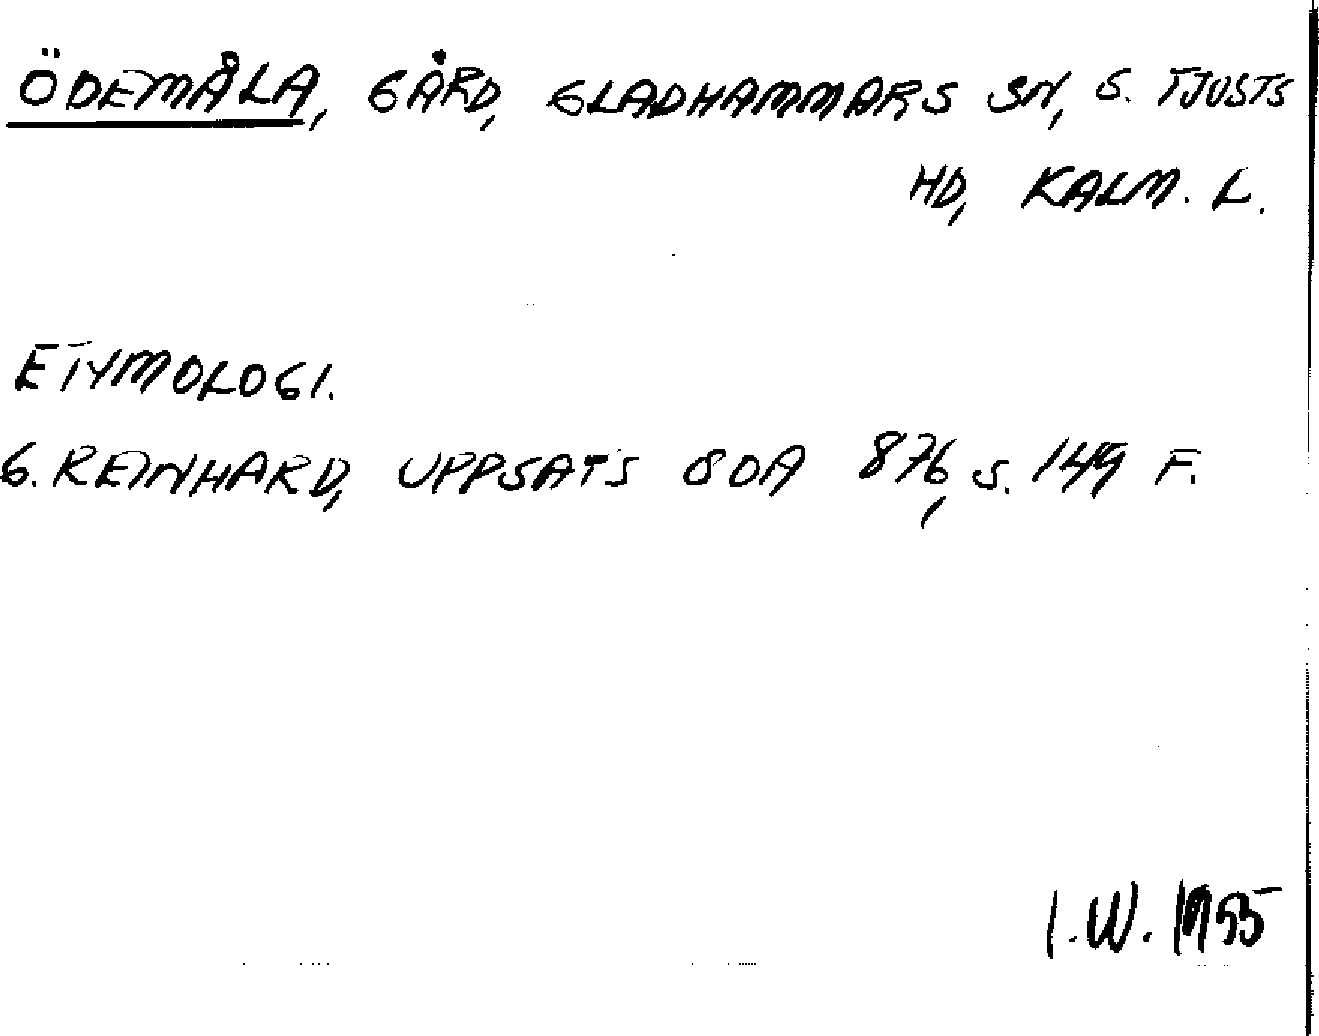 ÖDEMÅLA, GÅRD, GLADHAMMARS SN, S. TJUSTS
HD, KALM. L.
ETYMOLOGI.
G. REINHARD, UPPSATS OOA 876, S. 149 F.
I.W. 1955